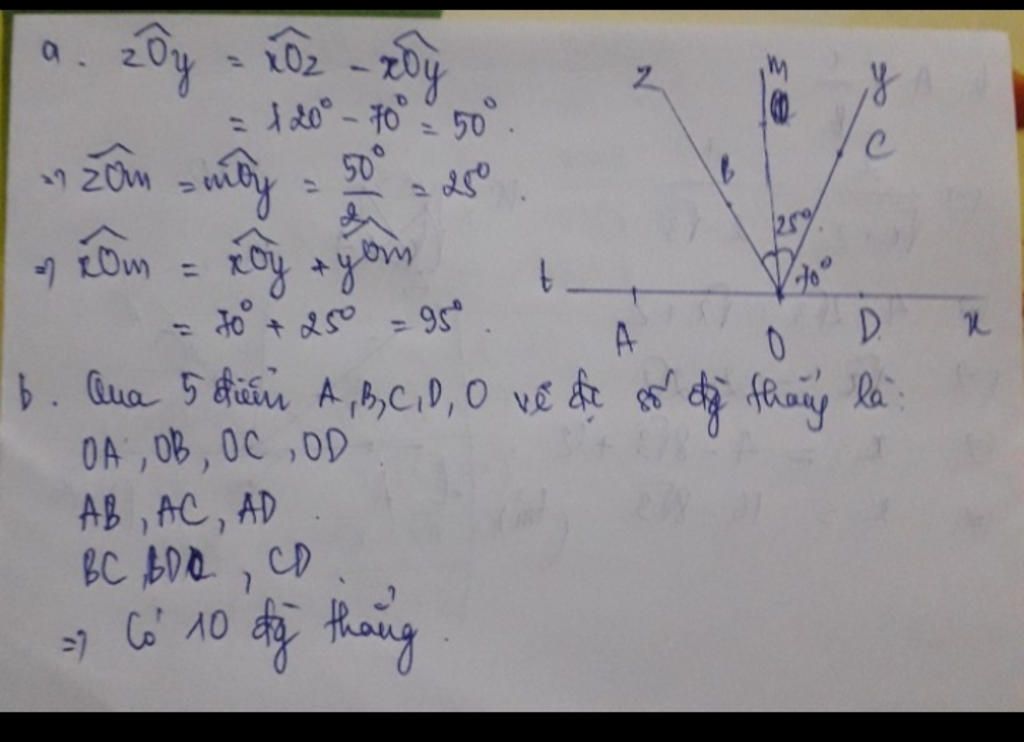 a. zÔy = xÔz - xÔy
= 120° - 70° = 50°.
=> zÔm = mÔy = 50°/2 = 25°.
=> xÔm = xÔy + yÔm
= 70° + 25° = 95°.
z m y
C
B
25°
70°
t x
A O D
b. Qua 5 điểm A, B, C, D, O vẽ đc số đg thẳng là:
OA, OB, OC, OD.
AB, AC, AD.
BC, BD, CD.
=> Có 10 đg thẳng.